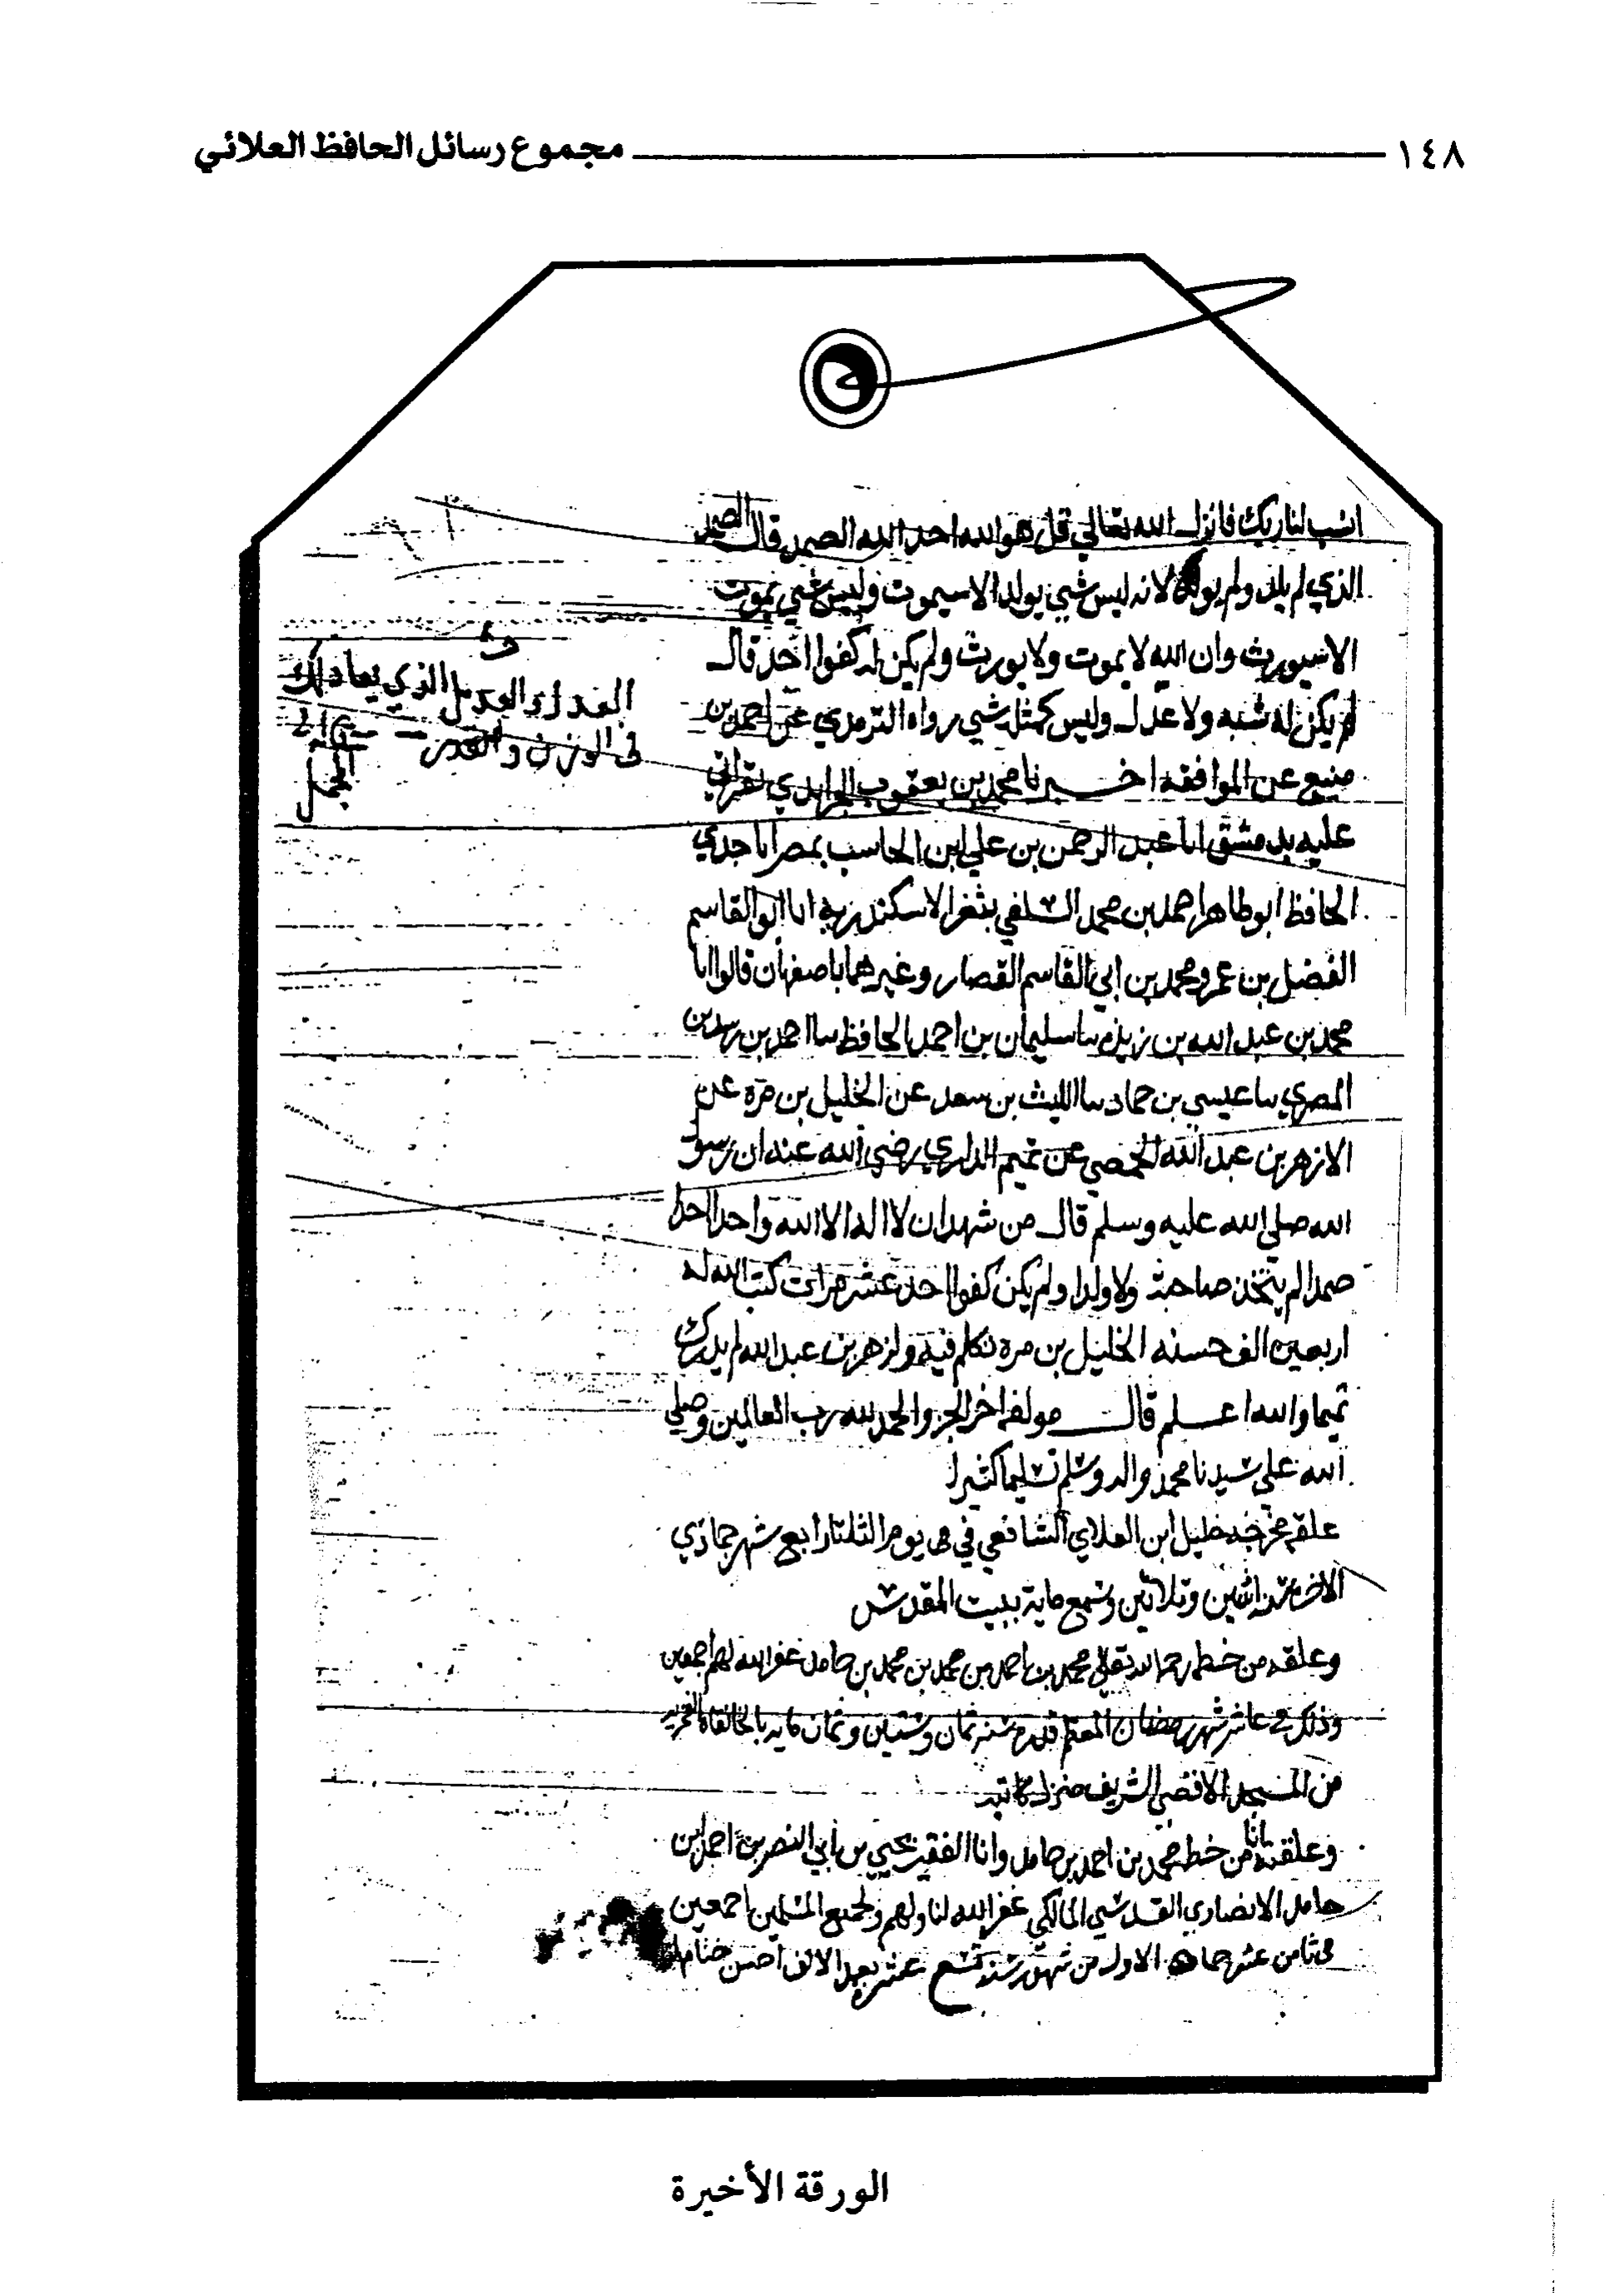 ١٤٨ مجموع رسائل الحافظ العلائي
انسب لنا ربك فانزل الله تعالى قل هو الله احد الله الصمد قال الصمد
الذي لم يلد ولم يولد لانه ليس شي يولد الا سيموت وليس شي يموت
الا سيورث وان الله لا يموت ولا يورث ولم يكن له كفوا احد قال
لم يكن له شبه ولا عدل وليس كمثله شي رواه الترمذي عن احمد بن
منيع عن الموافقه اخبرنا محمد بن يعقوب الجرايدي بقراتي
عليه بدمشق انا عبد الرحمن بن علي ابن الحاسب بمصر انا جدي
الحافظ ابو طاهر احمد بن محمد السلفي بثغر الاسكندرية انا ابو القاسم
الفضل بن عمر ومحمد بن ابي القاسم القصار وغيرهما باصفهان قالوا انا
محمد بن عبد الله بن ريذه سا سليمان بن احمد الحافظ سا احمد بن رسدين
المصري سا عيسي بن حماد سا الليث بن سعد عن الخليل بن مره عن
الازهر بن عبد الله الحمصي عن تميم الداري رضي الله عنه ان رسول
الله صلى الله عليه وسلم قال من شهد ان لا اله الا الله واحدا احدا
صمدا لم يتخذ صاحبة ولا ولدا ولم يكن كفوا احد عشر مرات كتب الله له
اربعين الف حسنه الخليل بن مره تكلم فيه وازهر بن عبد الله لم يدرك
تميما والله اعلم قال مولفه اخر الجز والحمد لله رب العالمين وصلي
الله علي سيدنا محمد واله وسلم تسليما كثيرا
علقه مخرجه خليل ابن العلاي الشافعي في يوم الثلثا رابع شهر جمادي
الاخره سنة اثنين وثلاثين وسبع ماية ببيت المقدس
وعلقه من خطه رحمه الله تعالى محمد بن احمد بن محمد بن محمد بن حامد غفر الله لهم اجمعين
وذلك في عاشر شهر رمضان المعظم قدره سنة ثمان وستين وثمان مايه بالخانقاه الفخريه
من المسجد الاقصي الشريف منزل كاتبه
وعلقته انا من خط محمد بن احمد بن حامد وانا الفقير يحيي بن ابي النصر بن احمد بن
حامد الانصاري القدسي المالكي غفر الله لنا ولهم ولجميع المسلمين اجمعين
في ثامن عشر جمادى الاول من شهور سنة تسع عشر بعد الالف احسن ختامها
العدل الذي يعادلك
في الوزن والقدر
المجمل
الورقة الأخيرة